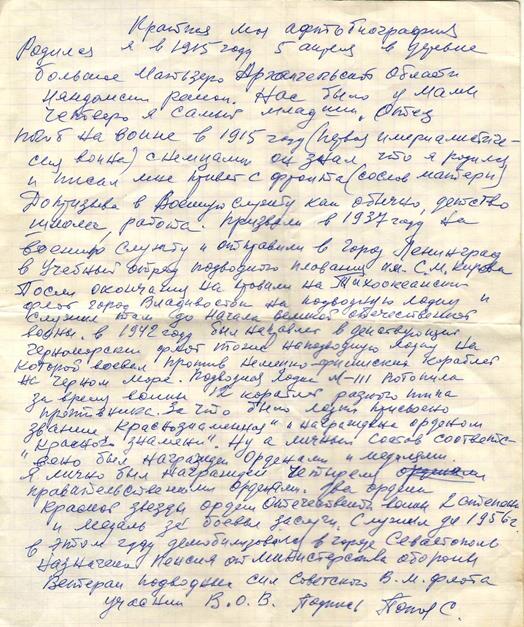 Краткая моя афтобиография
Родился я в 1915 году 5 апреля в деревне
большое Мантызеро Архангельской Области
Няндомски район. Нас было у мамы
четверо я самый младший. Отец
погиб на войне в 1915 году (первая империалистиче-
ская война) с немцами он знал что я родился
и писал мне привет с фронта (со слов матери)
До призыва в Военную службу как обычно, детство
школа, работа. Призвали в 1937 году на
военную службу и отправили в город Ленинград
в Учебный отряд подводного плования им. С.М. Кирова
После окончания направили на Тихоокеанский
флот город Владивосток на подводную лодку и
служил там до начала великой отечественной
войны. в 1942 году был направлен в действующий
Черноморский флот тоже на подводную лодку на
которой воевал против немецко-фашиских кораблей
на Черном море. Подводная лодка М-111 потопила
за время войны 12 кораблей разного типа
противника. За что было лодки присвоено
звание Краснознаменная" и награждена орденом
"Красного знамени". Ну а личный состав соответс-
венно был награжден Орденами и медалями.
Я лично был награжден четырьмя
правительственными орденами. два ордена
Красной звезды орден Отечественной войны 2 степени
и медаль за боевые заслуги. Служил до 1956 г.
в этом году демобилизовался в городе Севастополь
Назначена пенсия от министерства обороны
Ветеран подводных сил Советского В.М. флота
участник В.О.В. Подпись Попов С.